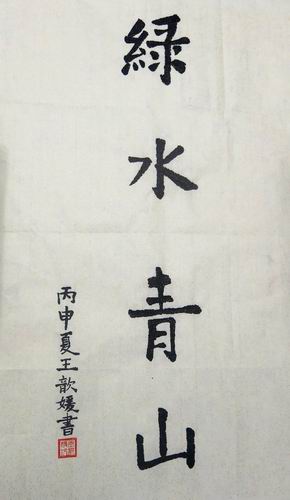 綠水青山
丙申夏王歆媛書